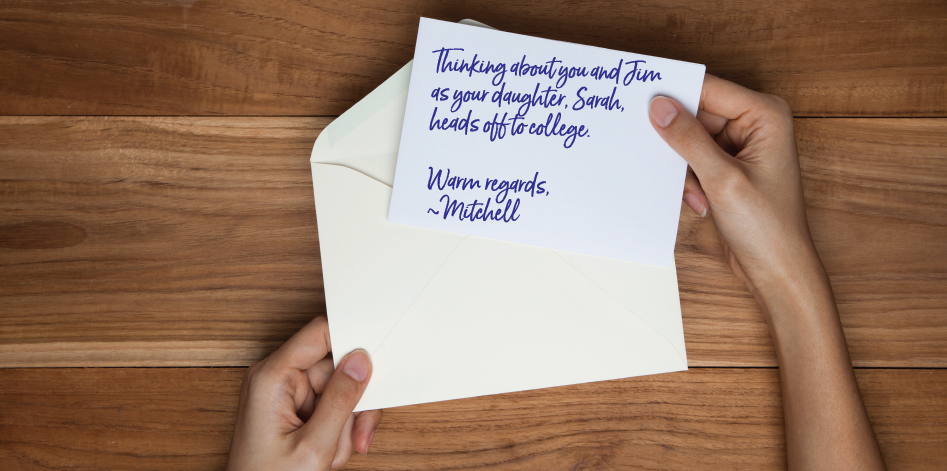 Thinking about you and Jim
as your daughter, Sarah,
heads off to college.
Warm regards,
~Mitchell